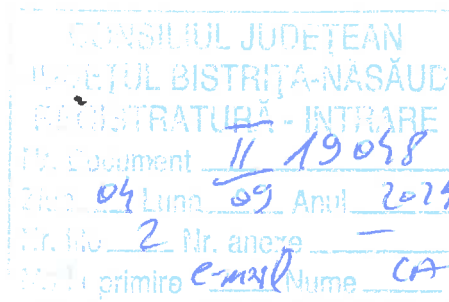 CONSILIUL JUDEȚEAN
JUDEȚUL BISTRIȚA-NĂSĂUD
REGISTRATURĂ - INTRARE
Nr. Document II 19048
Ziua 04 Luna 09 Anul 2024
Nr. file 2 Nr. anexe —
primire e-mail Nume CA